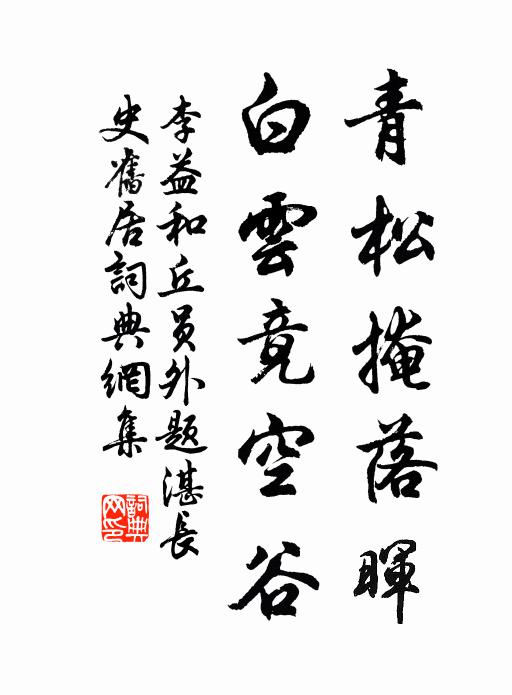 青松掩落暉
白雲竟空谷
李益和丘員外題湛長
史舊居詞典網集
詞典網印